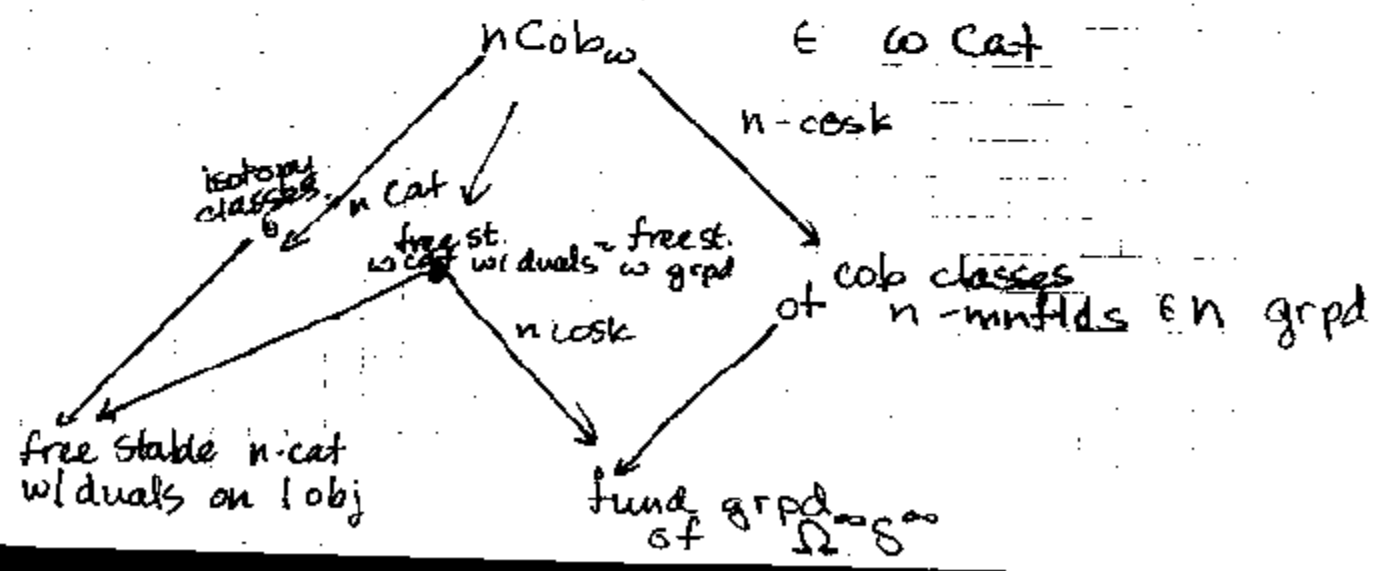 nCob_ω ∈ ω Cat
n-cosk
isotopy
classes
n Cat
free st. ~ free st.
ω cat w/ duals ω grpd
cob classes
of n-mnflds ∈ n grpd
n cosk
free stable n-cat
w/ duals on 1 obj
fund grpd
of Ω^∞ S^∞